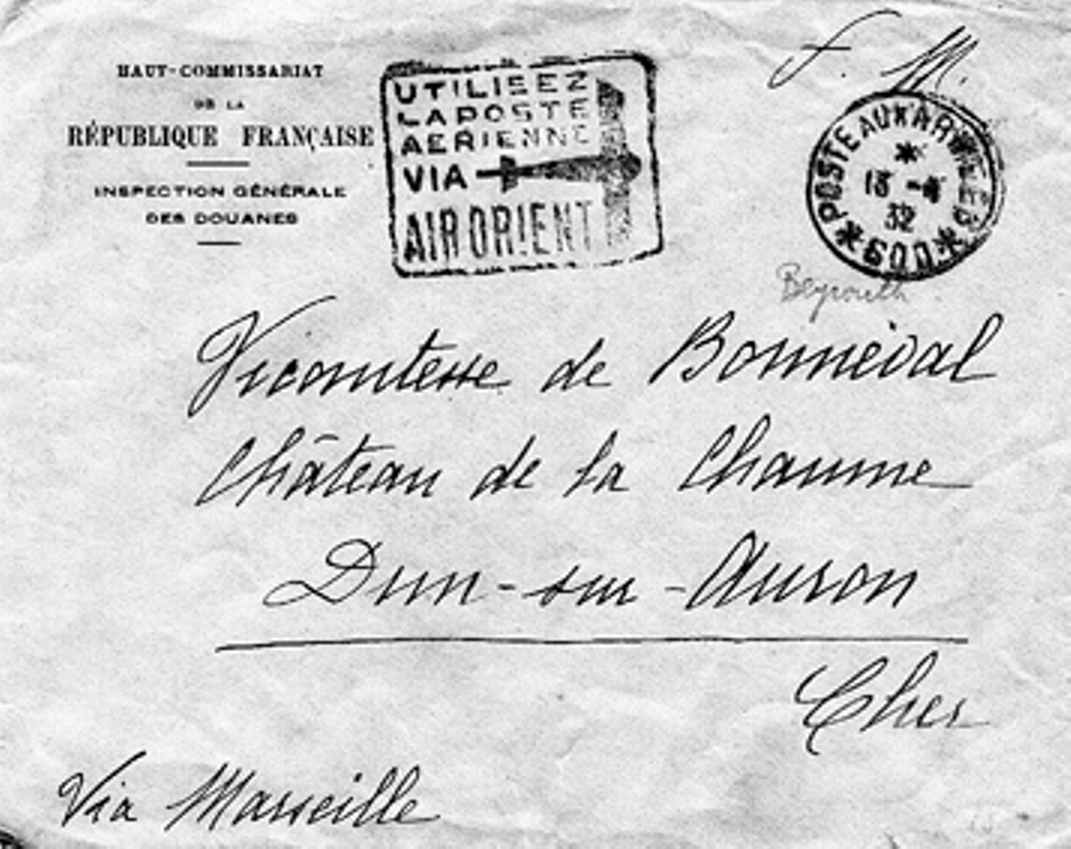 HAUT-COMMISSARIAT
DE LA
RÉPUBLIQUE FRANÇAISE
INSPECTION GÉNÉRALE
DES DOUANES
UTILISEZ
LA POSTE
AERIENNE
VIA
AIR ORIENT
F. M.
*POSTE AUX ARMEES*
13 -4
32
600
Beyrouth
Vicomtesse de Bonneval
Château de la Chaume
Dun-sur-Auron
Cher
Via Marseille